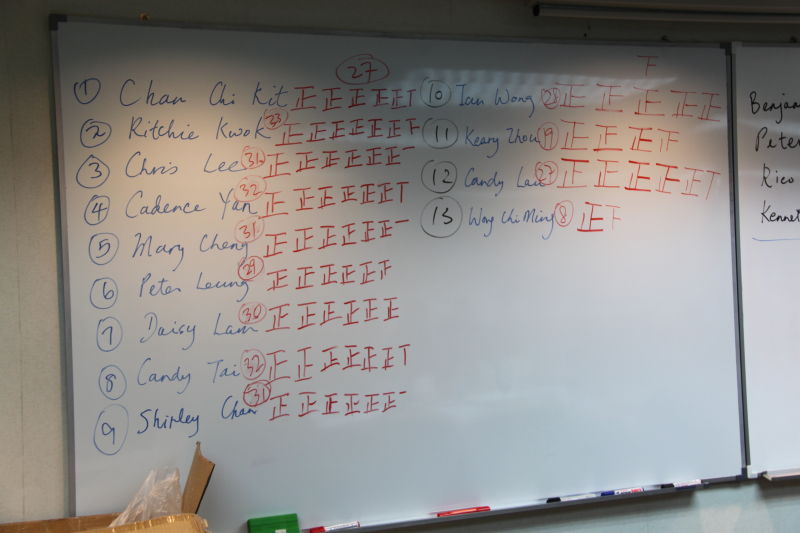 27
① Chan Chi Kit 正正正正正T
② Ritchie Kwok 33 正正正正正正下
③ Chris Lee 31 正正正正正正一
④ Cadence Yan 32 正正正正正正T
⑤ Mary Cheng 31 正正正正正正一
⑥ Peter Leung 29 正正正正正
⑦ Daisy Lam 30 正正正正正正
⑧ Candy Tai 32 正正正正正正T
⑨ Shirley Chan 31 正正正正正正一
下
⑩ Ian Wong 28 正正正正正
⑪ Keary Zhou 正正正
⑫ Candy Lau 27 正正正正正T
⑬ Wong Chi Ming 8 正下
Peter
Rico